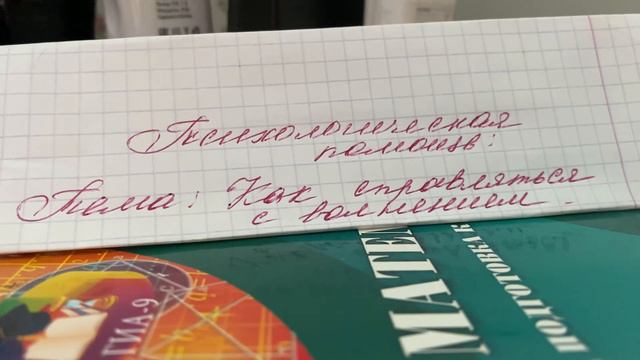 Психологическая
помощь:
Тема: Как справляться
с волнением.
МАТЕМ
ПОДГОТОВКА К
ГИА-9